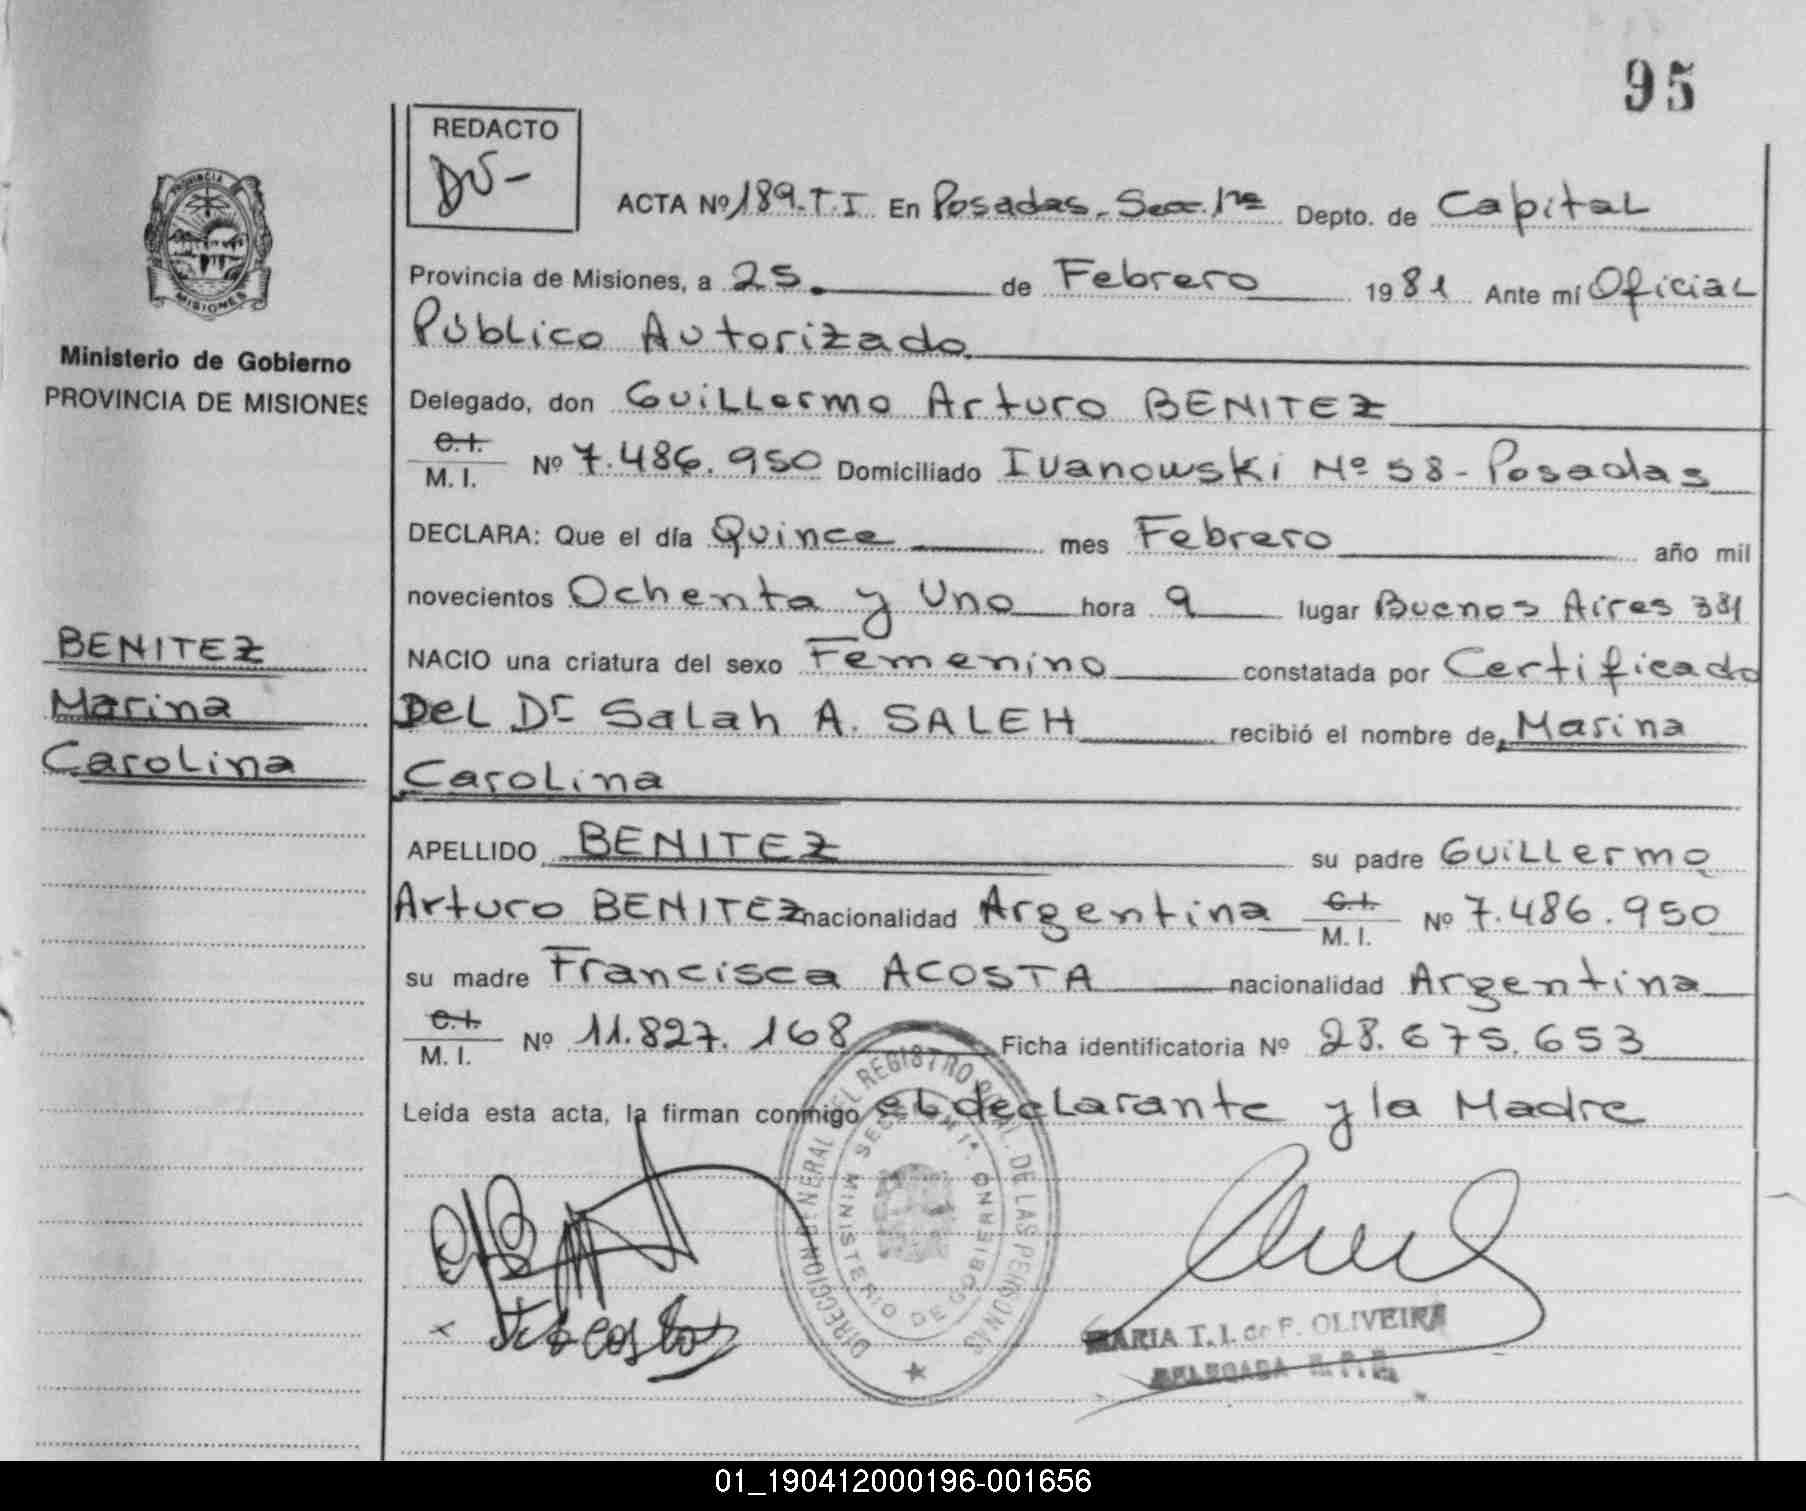 95
REDACTO
PROVINCIA
MISIONES
Ministerio de Gobierno
PROVINCIA DE MISIONES
BENITEZ
Marina
Carolina
ACTA Nº 189.T.I En Posadas. Secc. 1ra Depto. de Capital
Provincia de Misiones, a 25. de Febrero 1981 Ante mí Oficial
Público Autorizado.
Delegado, don Guillermo Arturo BENITEZ
C.I.
M. I. Nº 7.486.950 Domiciliado Ivanowski Nº 58 - Posadas
DECLARA: Que el día Quince mes Febrero año mil
novecientos Ochenta y Uno hora 9 lugar Buenos Aires 381
NACIO una criatura del sexo Femenino constatada por Certificado
Del Dr Salah A. SALEH recibió el nombre de, Marina
Carolina
APELLIDO BENITEZ su padre Guillermo
Arturo BENITEZ nacionalidad Argentina C.I. M. I. Nº 7.486.950
su madre Francisca ACOSTA nacionalidad Argentina
C.I.
M. I. Nº 11.827.168 Ficha identificatoria Nº 28.675.653
Leída esta acta, la firman conmigo el declarante y la Madre
DIRECCION GENERAL DEL REGISTRO DE LAS PERSONAS
MINISTERIO DE GOBIERNO
SECCION 1ª.
MARIA T. I. de F. OLIVEIRA
DELEGADA
01_190412000196-001656